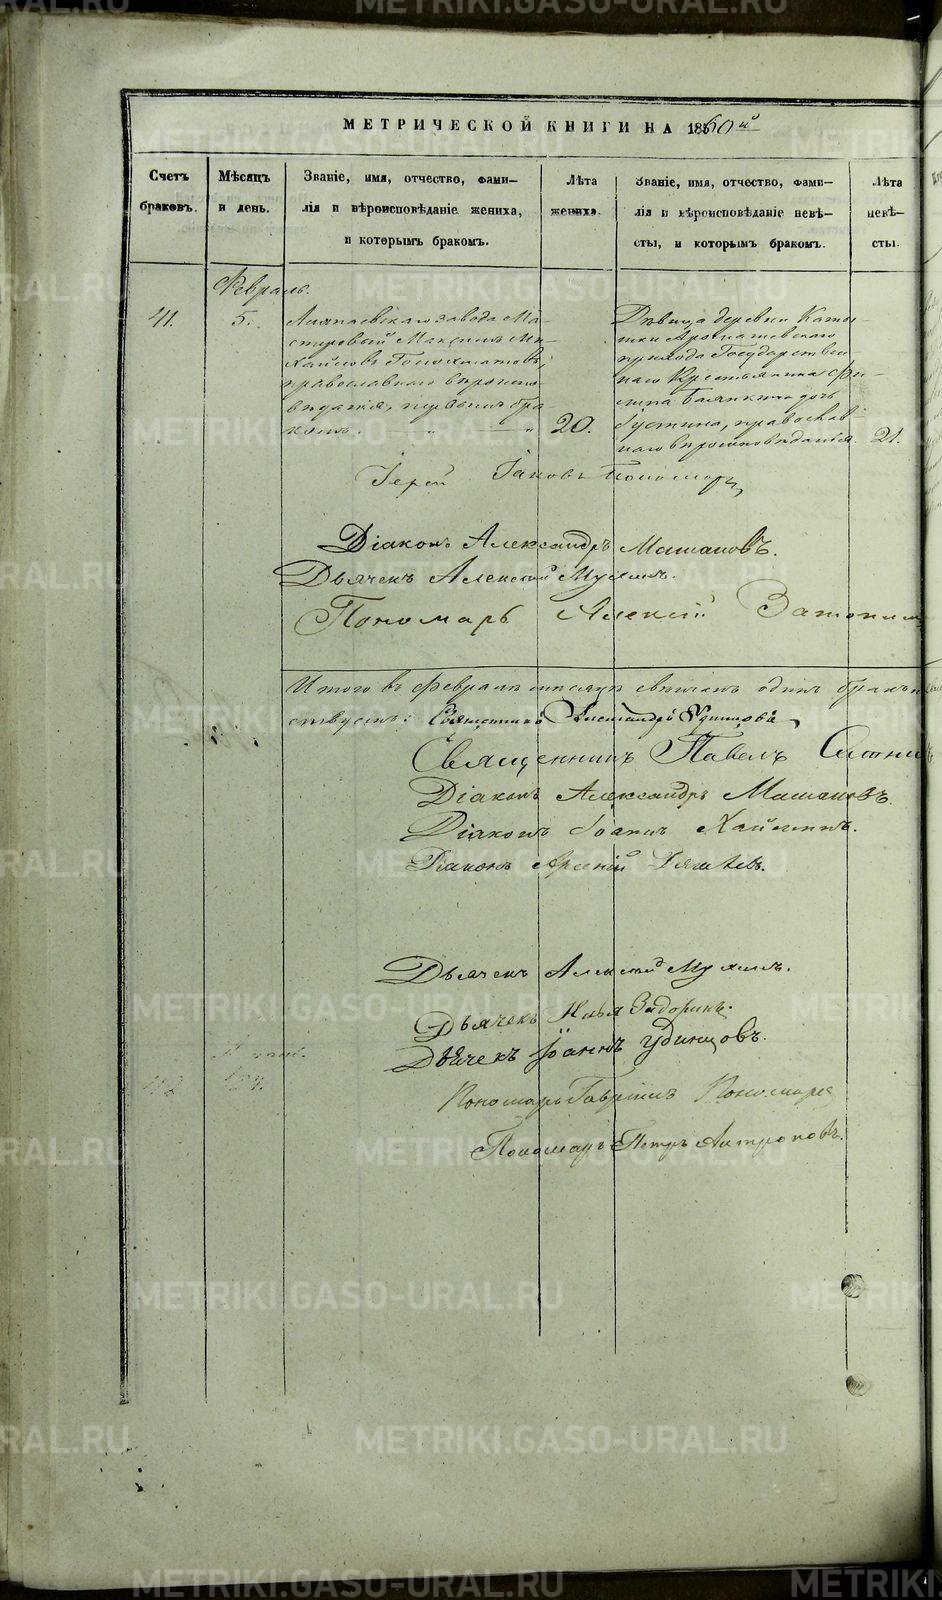 МЕТРИЧЕСКОЙ КНИГИ НА 1860й
Счетъ браковъ.
Мѣсяцъ и день.
Званіе, имя, отчество, фами-
лія и вѣроисповѣданіе жениха,
и которымъ бракомъ.
Лѣта жениха.
Званіе, имя, отчество, фами-
лія и вѣроисповѣданіе невѣ-
сты, и которымъ бракомъ.
Лѣта невѣ-
сты.
Февраль.
41.
5.
Алапаевскаго завода Ма-
стеровый Максимъ Ми-
хайловъ
православнаго вѣроиспо-
вѣданія, первымъ бра-
комъ.
20.
Дѣвица деревни
прихода Государствен-
наго Крестьянина Фи-
липа дочь
Іустина, православ-
наго вѣроисповѣданія.
21.
Іерей Іаковъ Пономаръ
Діаконъ Александръ Машановъ.
Дьячекъ Алексій Мухинъ.
Пономарь Алексій
Итого въ Февралѣ мѣсяцѣ вѣнчанъ одинъ бракъ
Священникъ Александръ Удинцовъ
Священникъ Павелъ
Діаконъ Александръ Машановъ.
Діаконъ Іоаннъ
Діаконъ Арсеній
Дьячекъ Алексій Мухинъ.
Дьячекъ Илья Задоринъ.
Дьячекъ Іоаннъ Удинцовъ.
Пономарь Гавріилъ Пономаревъ
Пономарь Петръ Антроповъ.
METRIKI.GASO-URAL.RU